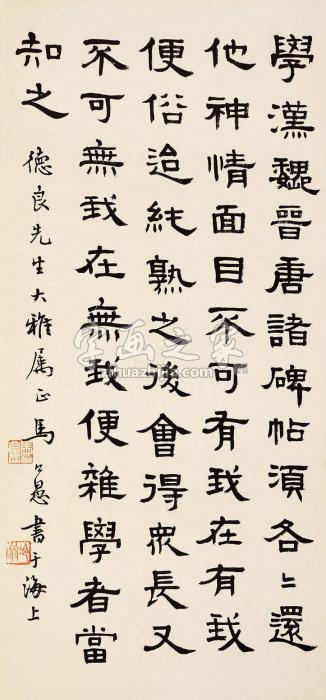 學漢魏晉唐諸碑帖須各各還
他神情面目不可有我在有我
便俗迨純熟之後會得眾長又
不可無我在無我便雜學者當
知之
德良先生大雅屬正馬公愚書于海上
字画之家